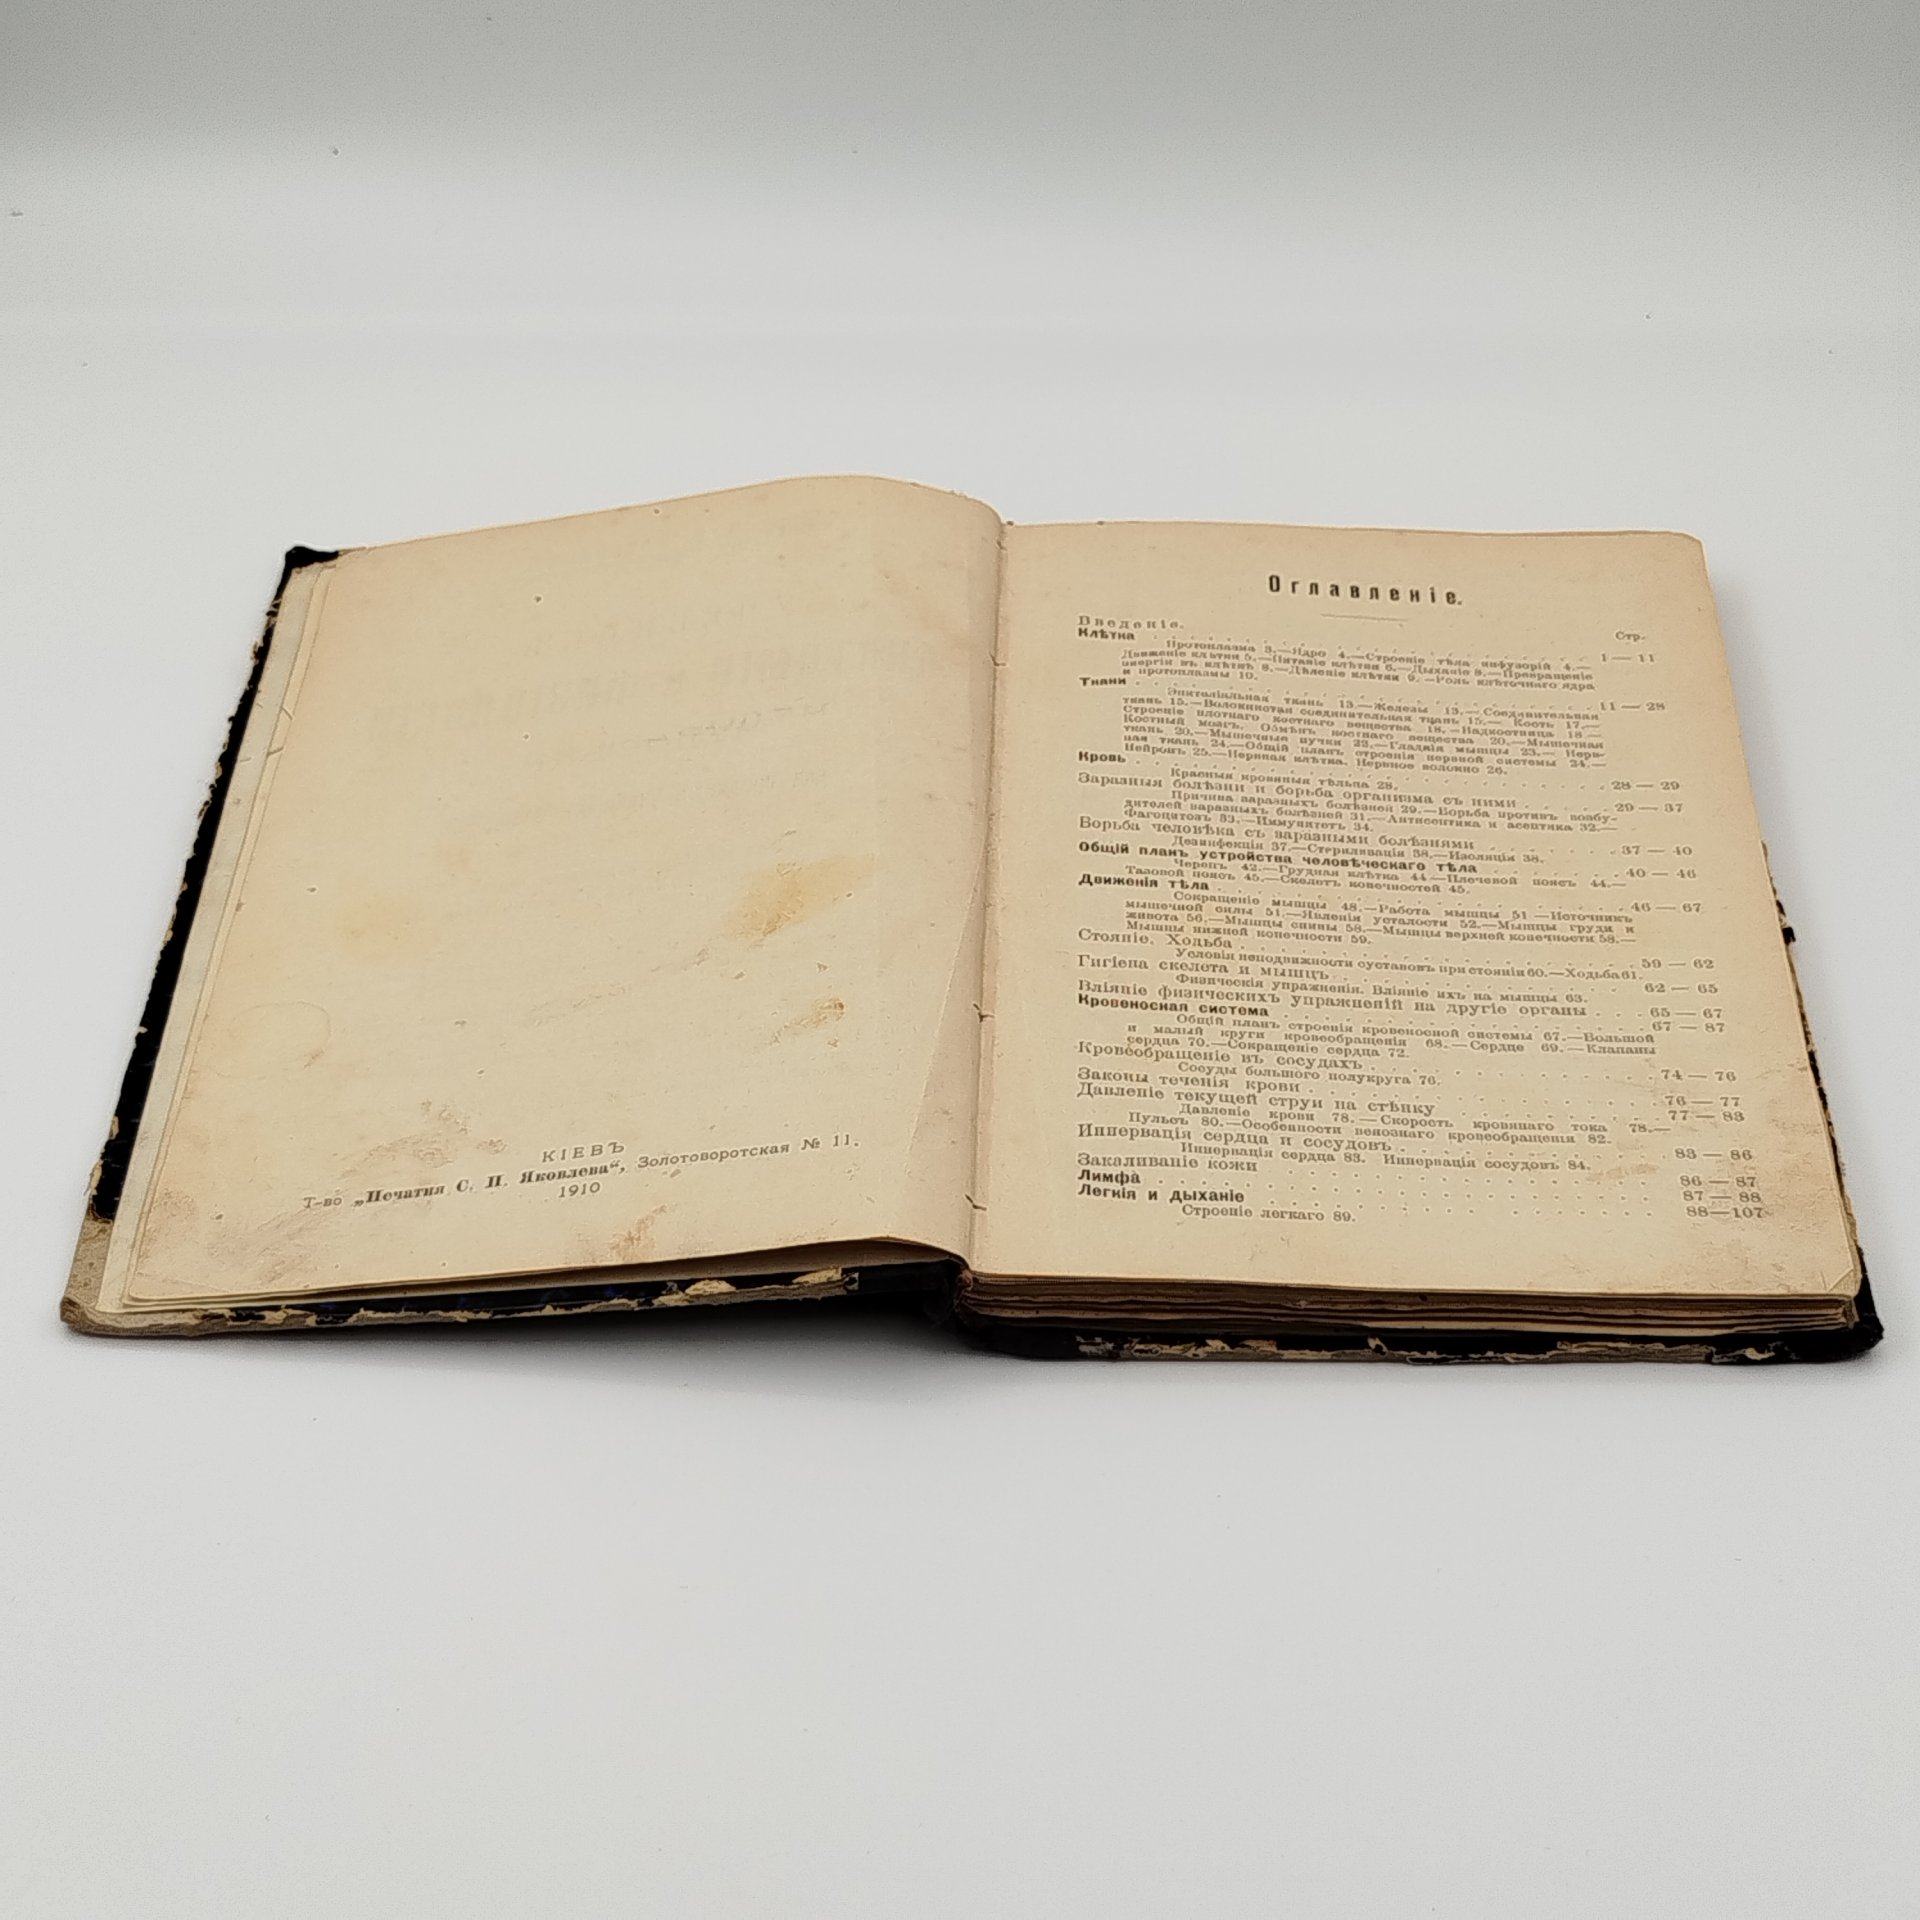 КІЕВЪ
Т-во „Печатня С. П. Яковлева“, Золотоворотская № 11.
1910
Оглавленіе.
Введеніе.
Стр.
Клѣтка . . . . . . . . . . . . 1 — 11
Протоплазма 3.—Ядро 4.—Строеніе тѣла инфузорій 4.—
Движеніе клѣтки 5.—Питаніе клѣтки 6.—Дыханіе 8.—Превращеніе
энергіи въ клѣткѣ 8.—Дѣленіе клѣтки 9.—Роль клѣточнаго ядра
и протоплазмы 10.
Ткани . . . . . . . . . . . . 11 — 28
Эпителіальная ткань 13.—Железы 13.—Соединительная
ткань 15.—Волокнистая соединительная ткань 15.—Кость 17.—
Строеніе плотнаго костнаго вещества 18.—Надкостница 18—
Костный мозгъ. Обмѣнъ костнаго вещества 20.—Мышечная
ткань 20.—Мышечные пучки 22.—Гладкія мышцы 23.—Нерв-
ная ткань 24.—Общій планъ строенія нервной системы 24.—
Нейронъ 25.—Нервная клѣтка. Нервное волокно 26.
Кровь . . . . . . . . . . . . 28 — 29
Красныя кровяныя тѣльца 28.
Заразныя болѣзни и борьба организма съ ними . . . . . 29 — 37
Причина заразныхъ болѣзней 29.—Борьба противъ возбу-
дителей заразныхъ болѣзней 31.—Антисептика и асептика 32.—
Фагоцитозъ 33.—Иммунитетъ 34.
Борьба человѣка съ заразными болѣзнями . . . . . . . 37 — 40
Дезинфекція 37.—Стерилизація 38.—Изоляція 38.
Общій планъ устройства человѣческаго тѣла . . . . . . . 40 — 46
Черепъ 42.—Грудная клѣтка 44—Плечевой поясъ 44.—
Тазовой поясъ 45.—Скелетъ конечностей 45.
Движенія тѣла . . . . . . . . . . . . 46 — 67
Сокращеніе мышцы 48.—Работа мышцы 51—Источникъ
мышечной силы 51.—Явленія усталости 52.—Мышцы груди и
живота 56.—Мышцы спины 58.—Мышцы верхней конечности 58.—
Мышцы нижней конечности 59.
Стояніе. Ходьба . . . . . . . . . . . . 59 — 62
Условія неподвижности суставовъ при стояніи 60.—Ходьба 61.
Гигіена скелета и мышцъ . . . . . . . . . . . . 62 — 65
Физическія упражненія. Вліяніе ихъ на мышцы 63.
Вліяніе физическихъ упражненій на другіе органы . . . 65 — 67
Кровеносная система . . . . . . . . . . . . 67 — 87
Общій планъ строенія кровеносной системы 67.—Большой
и малый круги кровеобращенія 68.—Сердце 69.—Клапаны
сердца 70.—Сокращеніе сердца 72.
Кровеобращеніе въ сосудахъ . . . . . . . . . . . . 74 — 76
Сосуды большого полукруга 76.
Законы теченія крови . . . . . . . . . . . . 76 — 77
Давленіе текущей струи на стѣнку . . . . . . . . . 77 — 83
Давленіе крови 78.—Скорость кровяного тока 78.—
Пульсъ 80.—Особенности венознаго кровеобращенія 82.
Иннервація сердца и сосудовъ . . . . . . . . . . . . 83 — 86
Иннервація сердца 83. Иннервація сосудовъ 84.
Закаливаніе кожи . . . . . . . . . . . . 86 — 87
Лимфа . . . . . . . . . . . . 87 — 88
Легкія и дыханіе . . . . . . . . . . . . 88—107
Строеніе легкаго 89.